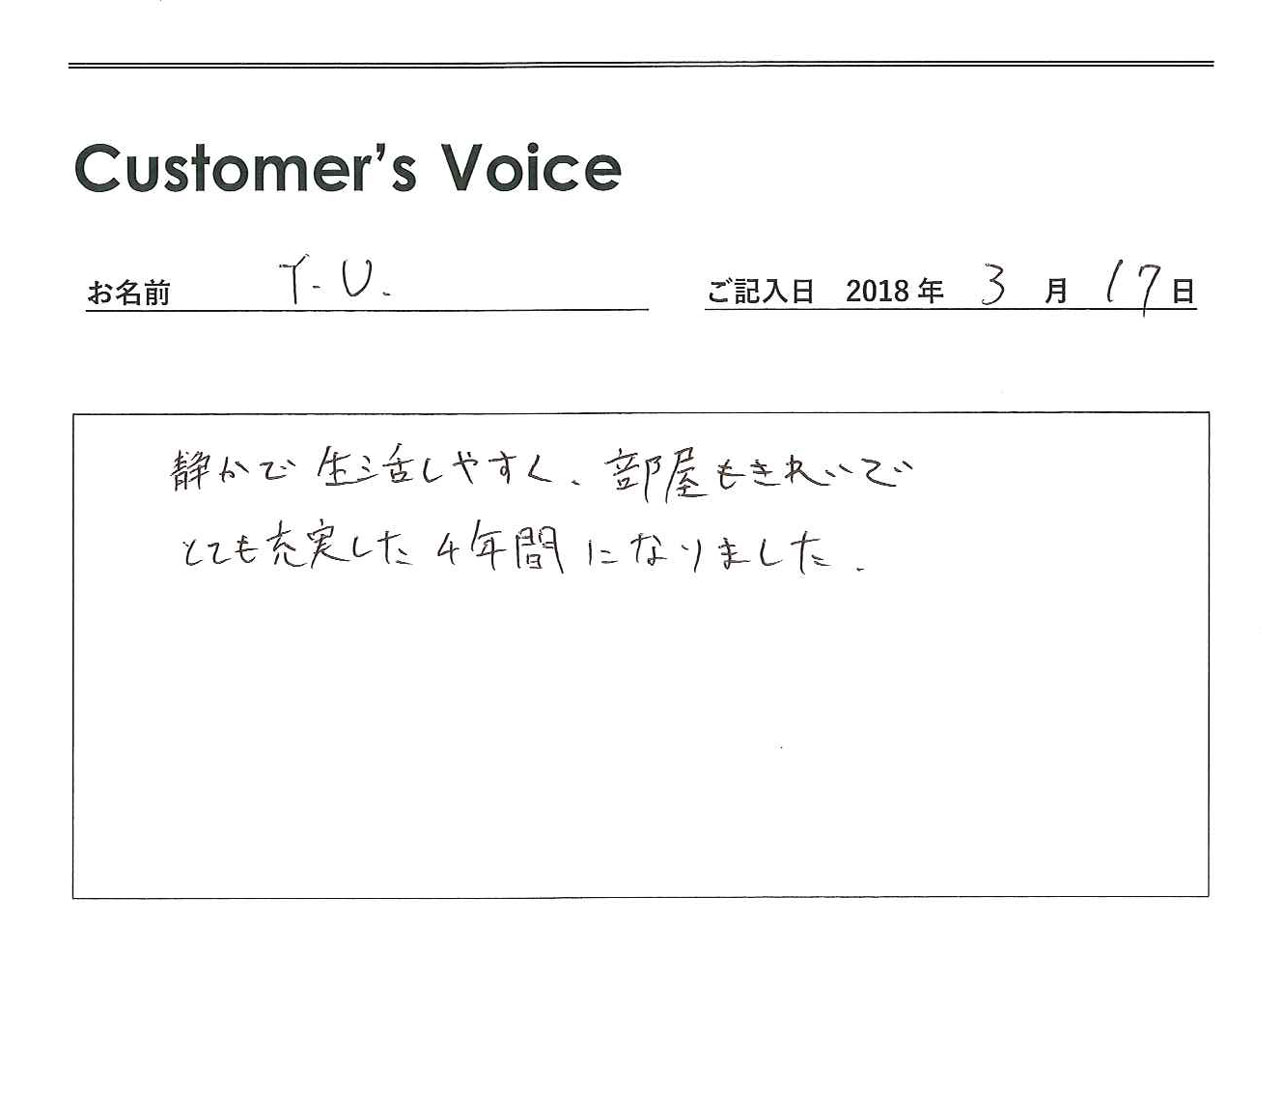 Customer's Voice
お名前 Y.U. ご記入日 2018年 3月 17日
静かで生活しやすく、部屋もきれいで
とても充実した4年間になりました.